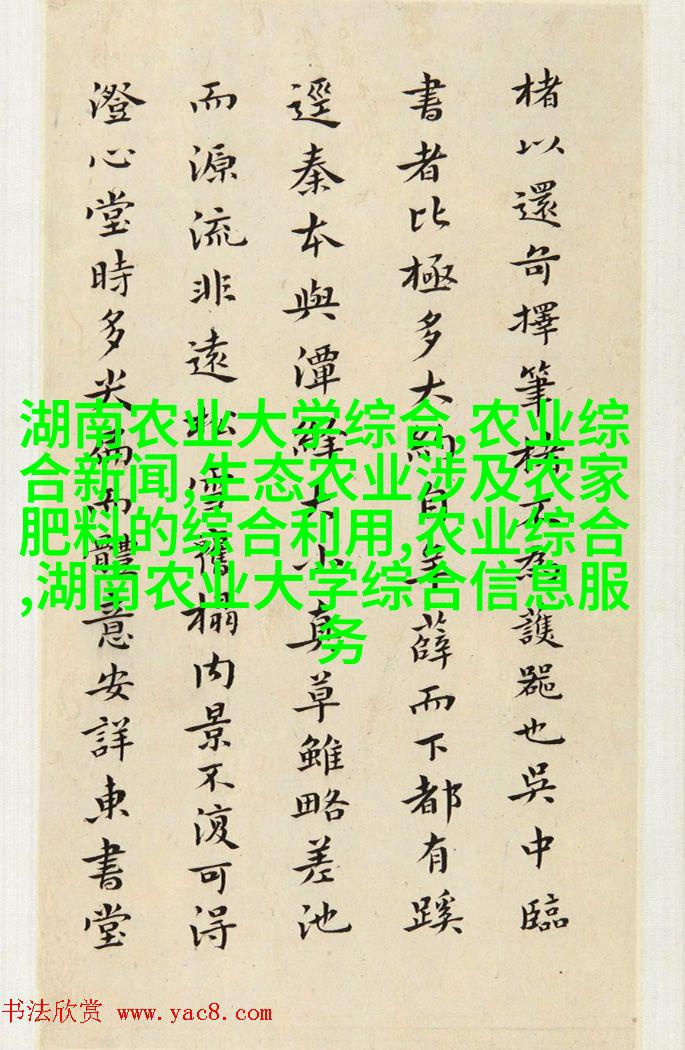 楮以還擇筆楮不為護器也吳中臨
書者比極多大約自羊薛而下都有蹊
逕秦本與潭絳大小真草雖略差池
而源流非遠松雪舊榻内景不復可得
澄心堂時多尖偏而體意安詳東書堂
湖南农业大学综合,农业综
合新闻,生态农业涉及农家
肥料的综合利用,农业综合
,湖南农业大学综合信息服
务
书法欣赏 www.yac8.com